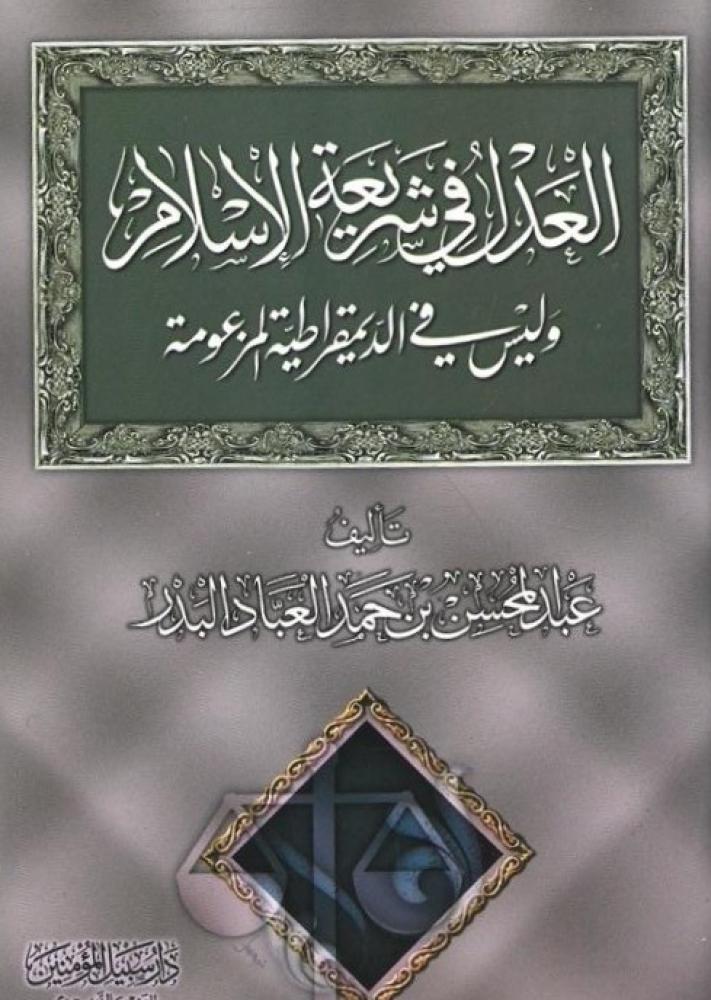 العَدْلُ فِي شَرِيعَةِ الإِسْلَامِ
وَلَيْسَ فِي الدِّيمُقْرَاطِيَّةِ المَزْعُومَة
تَأْلِيفُ
عَبْدِ المُحْسِن بْن حَمَد العَبَّاد البَدْر
دَار سَبِيل المُؤْمِنِينَ